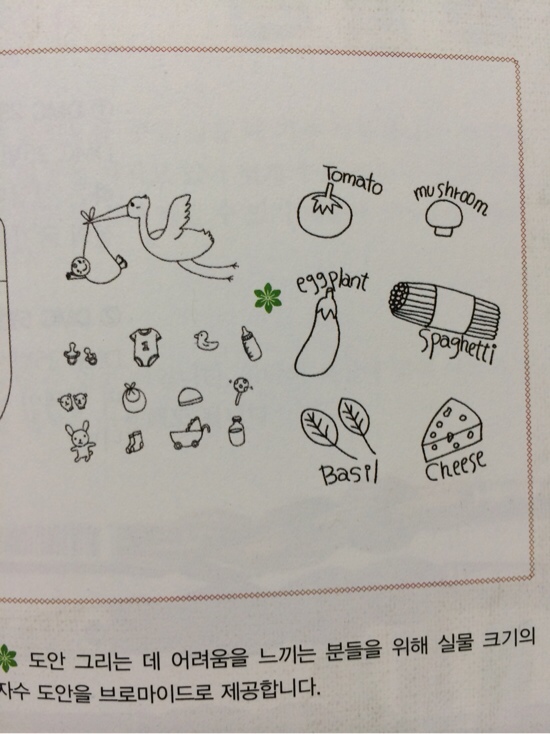 Tomato
mushroom
eggplant
Spaghetti
Basil
Cheese
도안 그리는 데 어려움을 느끼는 분들을 위해 실물 크기의
자수 도안을 브로마이드로 제공합니다.